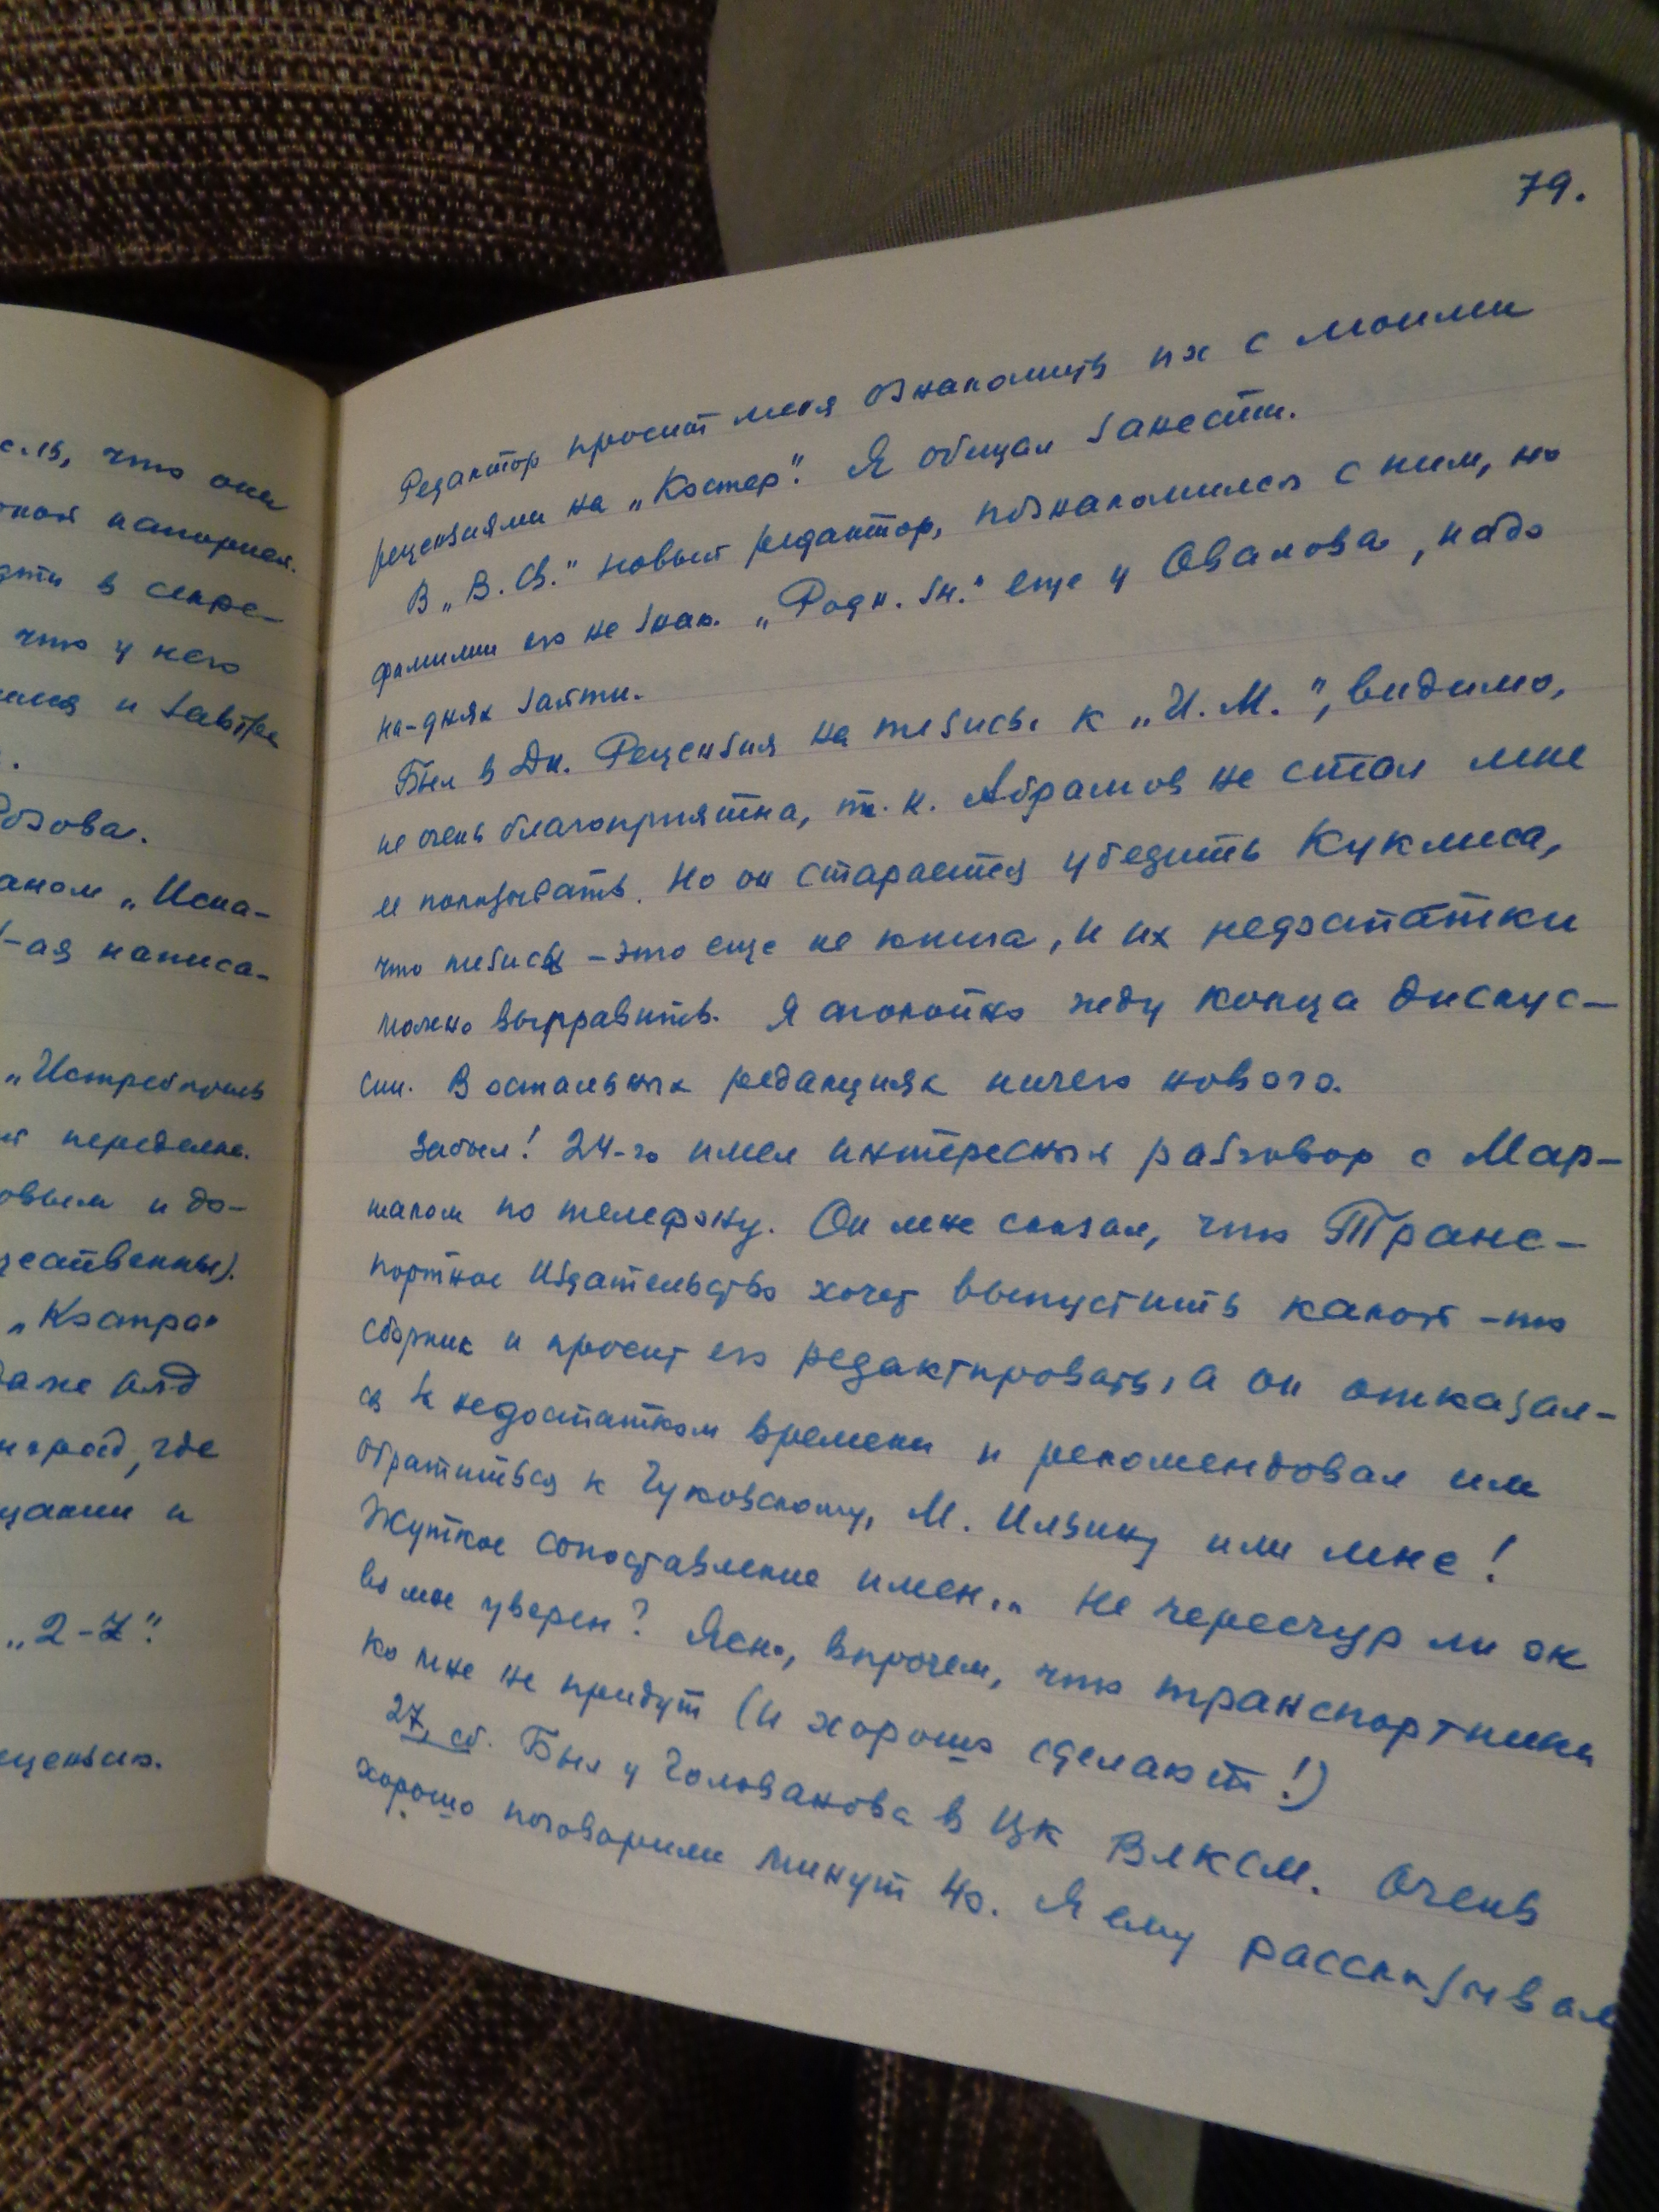 с.15, что они
напирает.
в секре-
что у него
и завтра
Розова.
„Иска-
-ая написа-
„Истребитель
переделке.
и до-
„Костра"
где
и
„2-Z".
рецензию.
79.
Редактор просит меня ознакомить их с моими
рецензиями на „Костер". Я обещал занести.
В „В. Св." новый редактор, познакомился с ним, но
фамилии его не знаю. „Родн. зн." еще у Овалова, надо
на-днях зайти.
Был в Ди. Рецензия на тезисы к „И. М.", видимо,
не очень благоприятна, т. к. Абрамов не стал мне
ее показывать. Но он старается убедить Куклиса,
что тезисы – это еще не книга, и их недостатки
можно выправить. Я спокойно жду конца дискус-
сии. В остальных редакциях ничего нового.
Забыл! 24-го имел интересный разговор с Мар-
шаком по телефону. Он мне сказал, что Транс-
портное Издательство хочет выпустить какой-то
сборник и просит его редактировать, а он отказал-
ся недостатком времени и рекомендовал им
обратиться к Чуковскому, М. Ильину или мне!
Жуткое сопоставление имен... Не чересчур ли он
во мне уверен? Ясно, впрочем, что транспортники
ко мне не придут (и хорошо сделают!)
27, сб. Был у Голованова в ЦК ВЛКСМ. Очень
хорошо поговорили минут 40. Я ему рассказывал